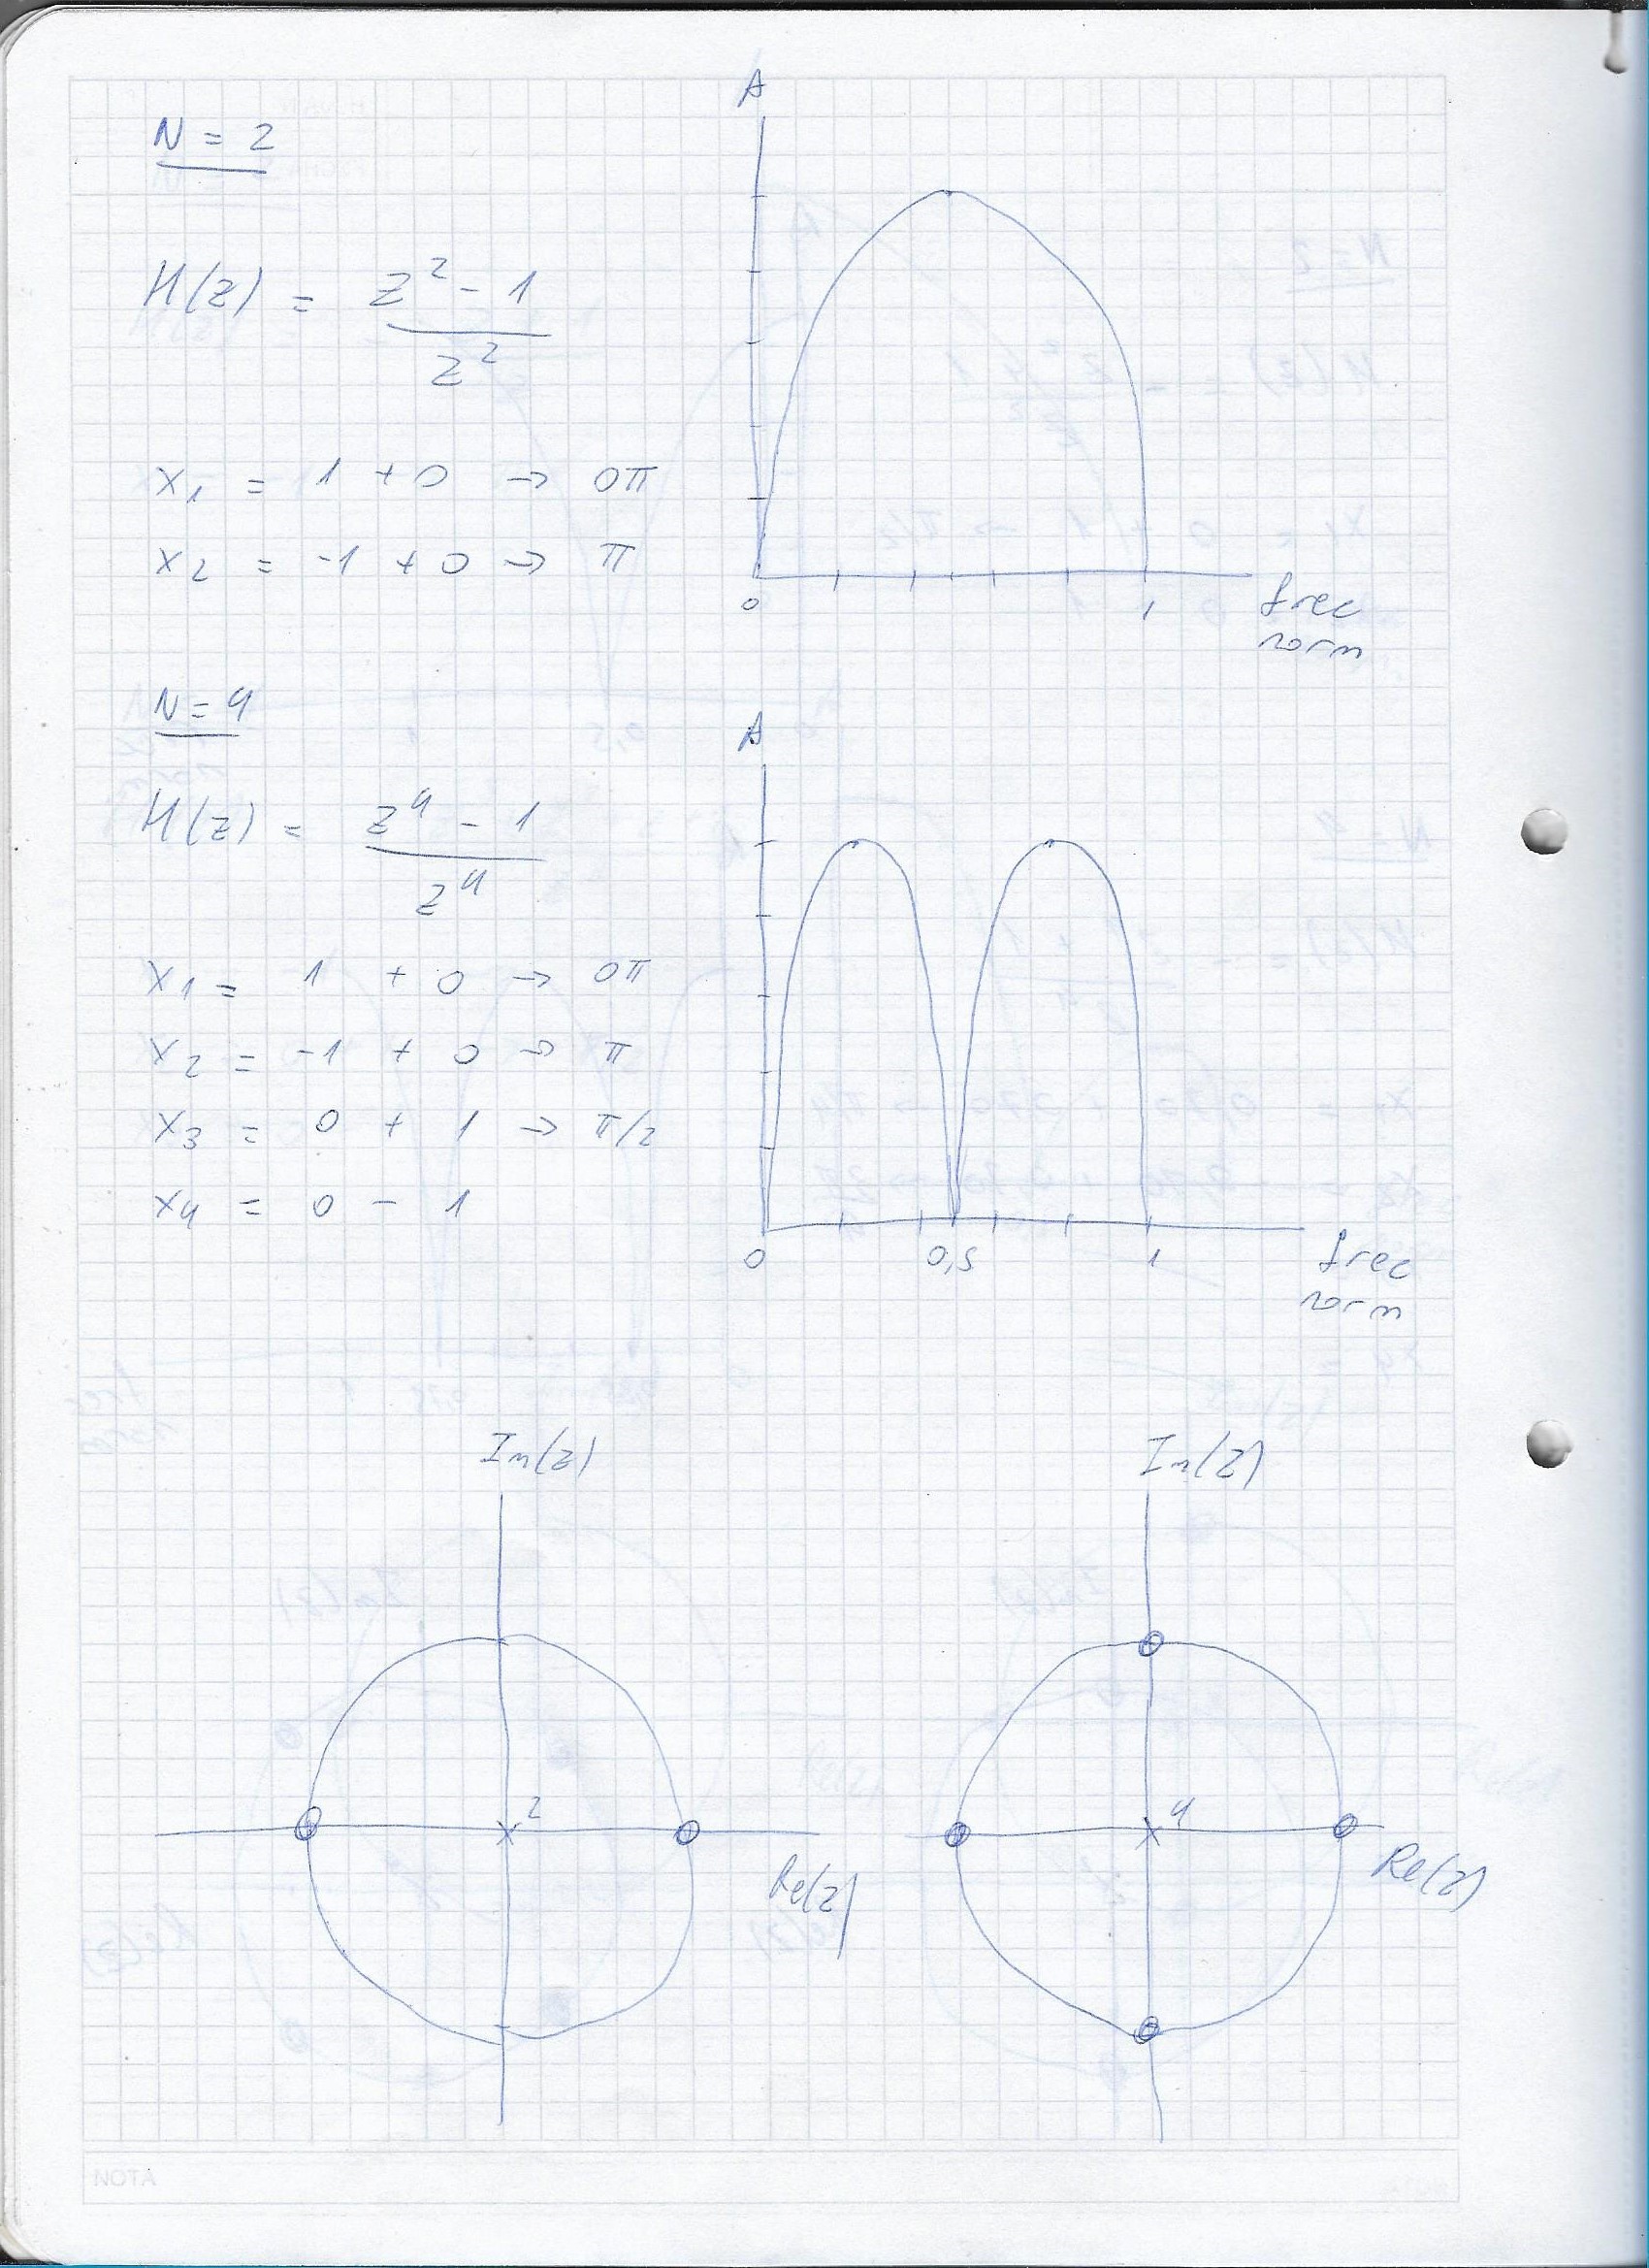 N = 2
H(z) = z² - 1
z²
x₁ = 1 + 0 → 0π
x₂ = -1 + 0 → π
A
0
1
frec
norm
N = 4
H(z) = z⁴ - 1
z⁴
x₁ = 1 + 0 → 0π
x₂ = -1 + 0 → π
x₃ = 0 + 1 → π/2
x₄ = 0 - 1
A
0
0,5
1
frec
norm
Im(z)
2
Re(z)
Im(z)
4
Re(z)
NOTA